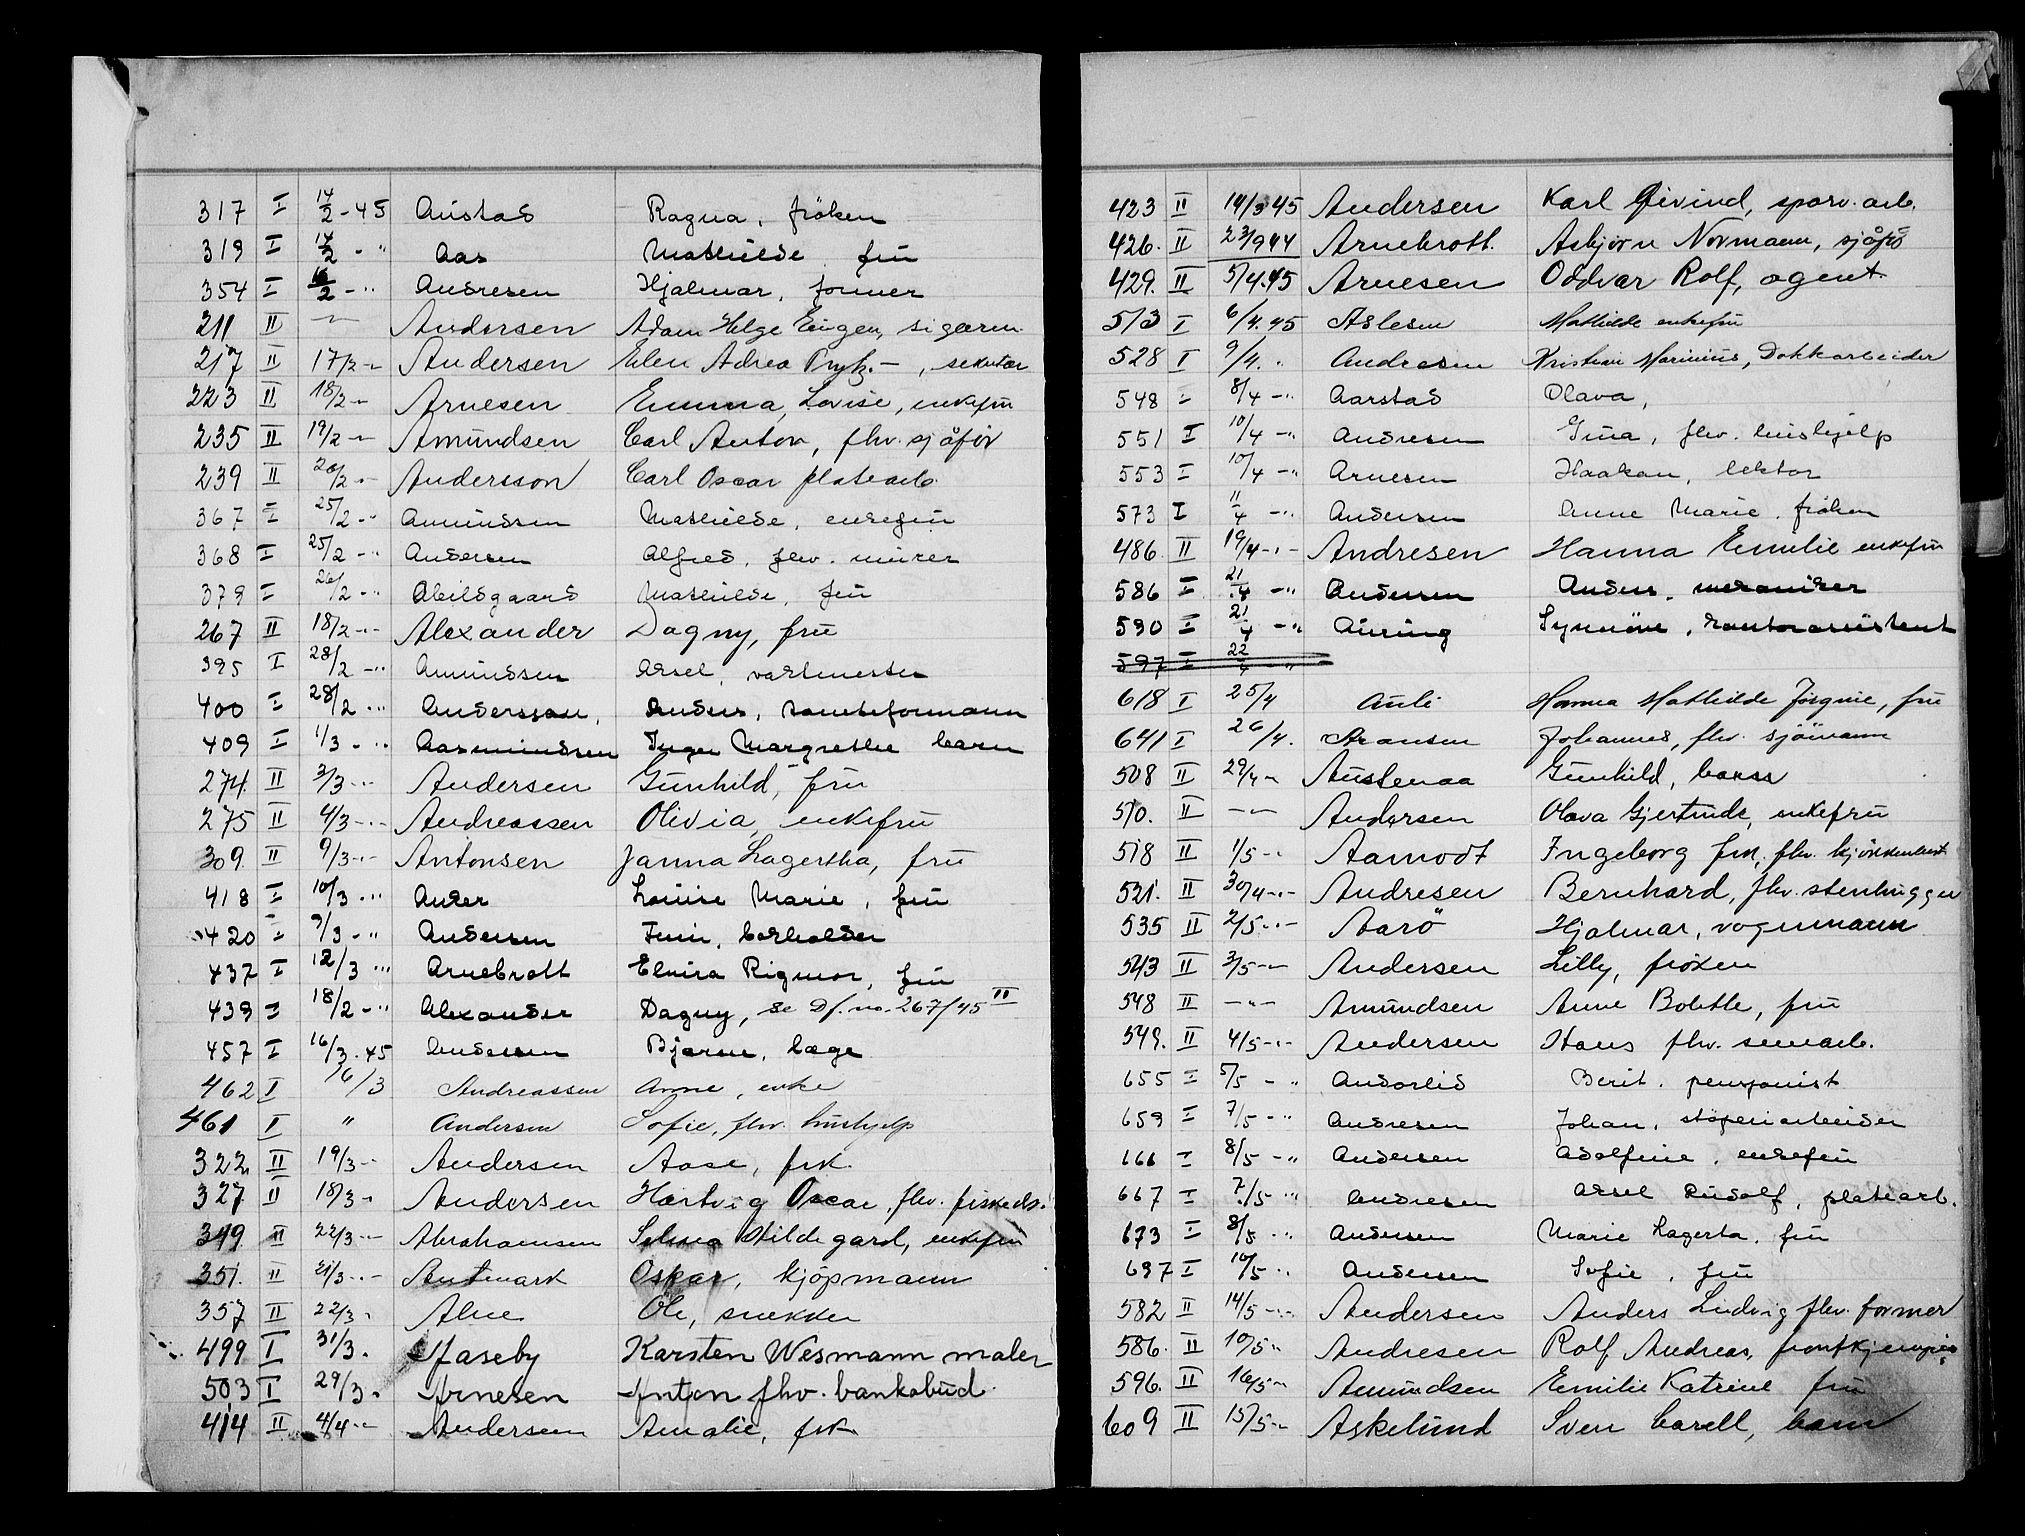 317 I 14/2-45 Austad Ragna, fröken
319 I 14/2 - " Aas Mathilde fru
354 I 16/2 - " Andresen Hjalmar, former
211 II - " - Andersen Adam Helge Eugen, sigarm.
217 II 17/2 - " Andersen Elen Adrea -, sekretær
223 II 18/2 - " Arnesen Emma, Lovise, enkefru
235 II 19/2 - " Amundsen Carl Anton, fhv. sjåför
239 II 20/2 - " Andersson Carl Oscar platearb.
367 I 25/2 - " Amundsen Mathilde, enkefru
368 I 25/2 - " Andersen Alfred, fhv. murer
379 I 26/2 - " Abildgaard Mathilde, fru
267 II 18/2 - " - Alexander Dagny, fru
395 I 28/2 - " Amundsen Aksel, vaktmester
400 I 28/2 - " Andersson, Anders, tomteformann
409 I 1/3 - " Aasmundsen Inger Margrethe barn
274 II 3/3 - " - Andersen Gunhild, fru
275 II 4/3 - " - Andreassen Olivia, enkefru
309. II 9/3 - " - Antonsen Janna Lagertha, fru
418 I 10/3 - " Anker Louise Marie, fru
420 I 9/3 - " Andersen
437 I 12/3 - " Arnebrott Elvira Rigmor, fru
439 I 18/2 - " Alexander Dagny, se Df. no. 267/45 II
457 I 16/3.45 Andersen Bjarne, læge
462 I 16/3 Andreassen Anne, enke
461 I " Andersen Sofie, fhv. hushjelp
322 II 19/3 - " Andersen Aase, frk.
327 II 18/3 - " Andersen Hartvig Oscar, fhv. fiskeh.
349. II 22/3 - " Abrahamsen Selma Hildegard, enkefru
351. II 21/3 - " - Antmark Oskar, kjöpmann
357 II 22/3 " Alne Ole, snekker
499 I 31/3 " Aaseby Karsten Wesmann maler
503 I 29/3 " Arnesen Anton fhv. bankobud.
414 II 4/4 - " Andersen Amalie, frk
423 II 14/3 45 Andersen Karl Eivind, sporv. arb.
426. II 23/9 44 Arnebrott. Asbjørn Normann, sjåfö
429. II 5/4.45 Arnesen Oddvar Rolf, agent.
513 I 6/4.45 Aslesen Mathilde enkefru
528 I 9/4. " Andresen Kristian Marinius, Dokkarbeider
548 I 8/4 - " Aarstad Olava,
551 I 10/4 - " Andresen Gina, fhv. hushjelp
553 I 10/4 - " Arnesen Haakon, lektor
573 I 11/4 - " Andersen Anne Marie, fröken
486. II 19/4 - " - Andresen Hanna Emilie enkefru
586 I 21/4 - " Andersen Anders, mekaniker
590 I 21/4 - " Auring Synnöve, kontorassistent
597 I 22/4 - "
618 I 25/4 Auli Hanna Mathilde Jörgine, fru
641 I 26/4. Aronsen Johannes, fhv. sjömann
508 II 29/4 " Austenaa Gunhild, barn
510. II - " - Andersen Olava Gjertrude, enkefru
518 II 1/5 - " Aamodt Ingeborg frk, fhv.
521. II 30/4 - " - Andresen Bernhard, fhv. stenhugger
535 II 2/5 - " - Aarö Hjalmar, vognmann
543 II 3/5 - " Andersen Lilly, fröken
548 II - " - Amundsen Anne Bolette, fru
549. II 4/5 - " - Andersen Hans fhv.
655 I 5/5 - " Andorlid Berit, pensjonist
659 I 7/5 - " Andresen Johan, støperiarbeider
661 I 8/5 - " Andersen Adolfine, enkefru
667 I 7/5 " Andresen Aksel Rudolf, platearb.
673 I 8/5 " Andersen Marie Lagerta, fru
697 I 10/5 " Andersen Sofie, fru
582 II 14/5 - " - Andersen Anders Ludvig fhv. former
586. II 10/5 " Andresen Rolf Andreas, frontkjemper
596. II 16/5 " Amundsen Emilie Katrine fru
609 II 15/5 - " Askelund Sven Carell, barn